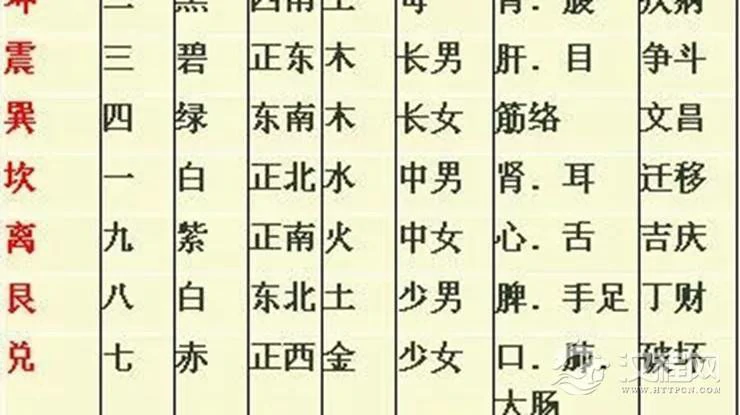 坤 二 黑 西南 土 母 疾病
震 三 碧 正东 木 长男 肝．目 争斗
巽 四 绿 东南 木 长女 筋络 文昌
坎 一 白 正北 水 中男 肾．耳 迁移
离 九 紫 正南 火 中女 心．舌 吉庆
艮 八 白 东北 土 少男 脾．手足 丁财
兑 七 赤 正西 金 少女 口．肺．大肠 破坏
汉程网
WWW.HTTPCN.COM